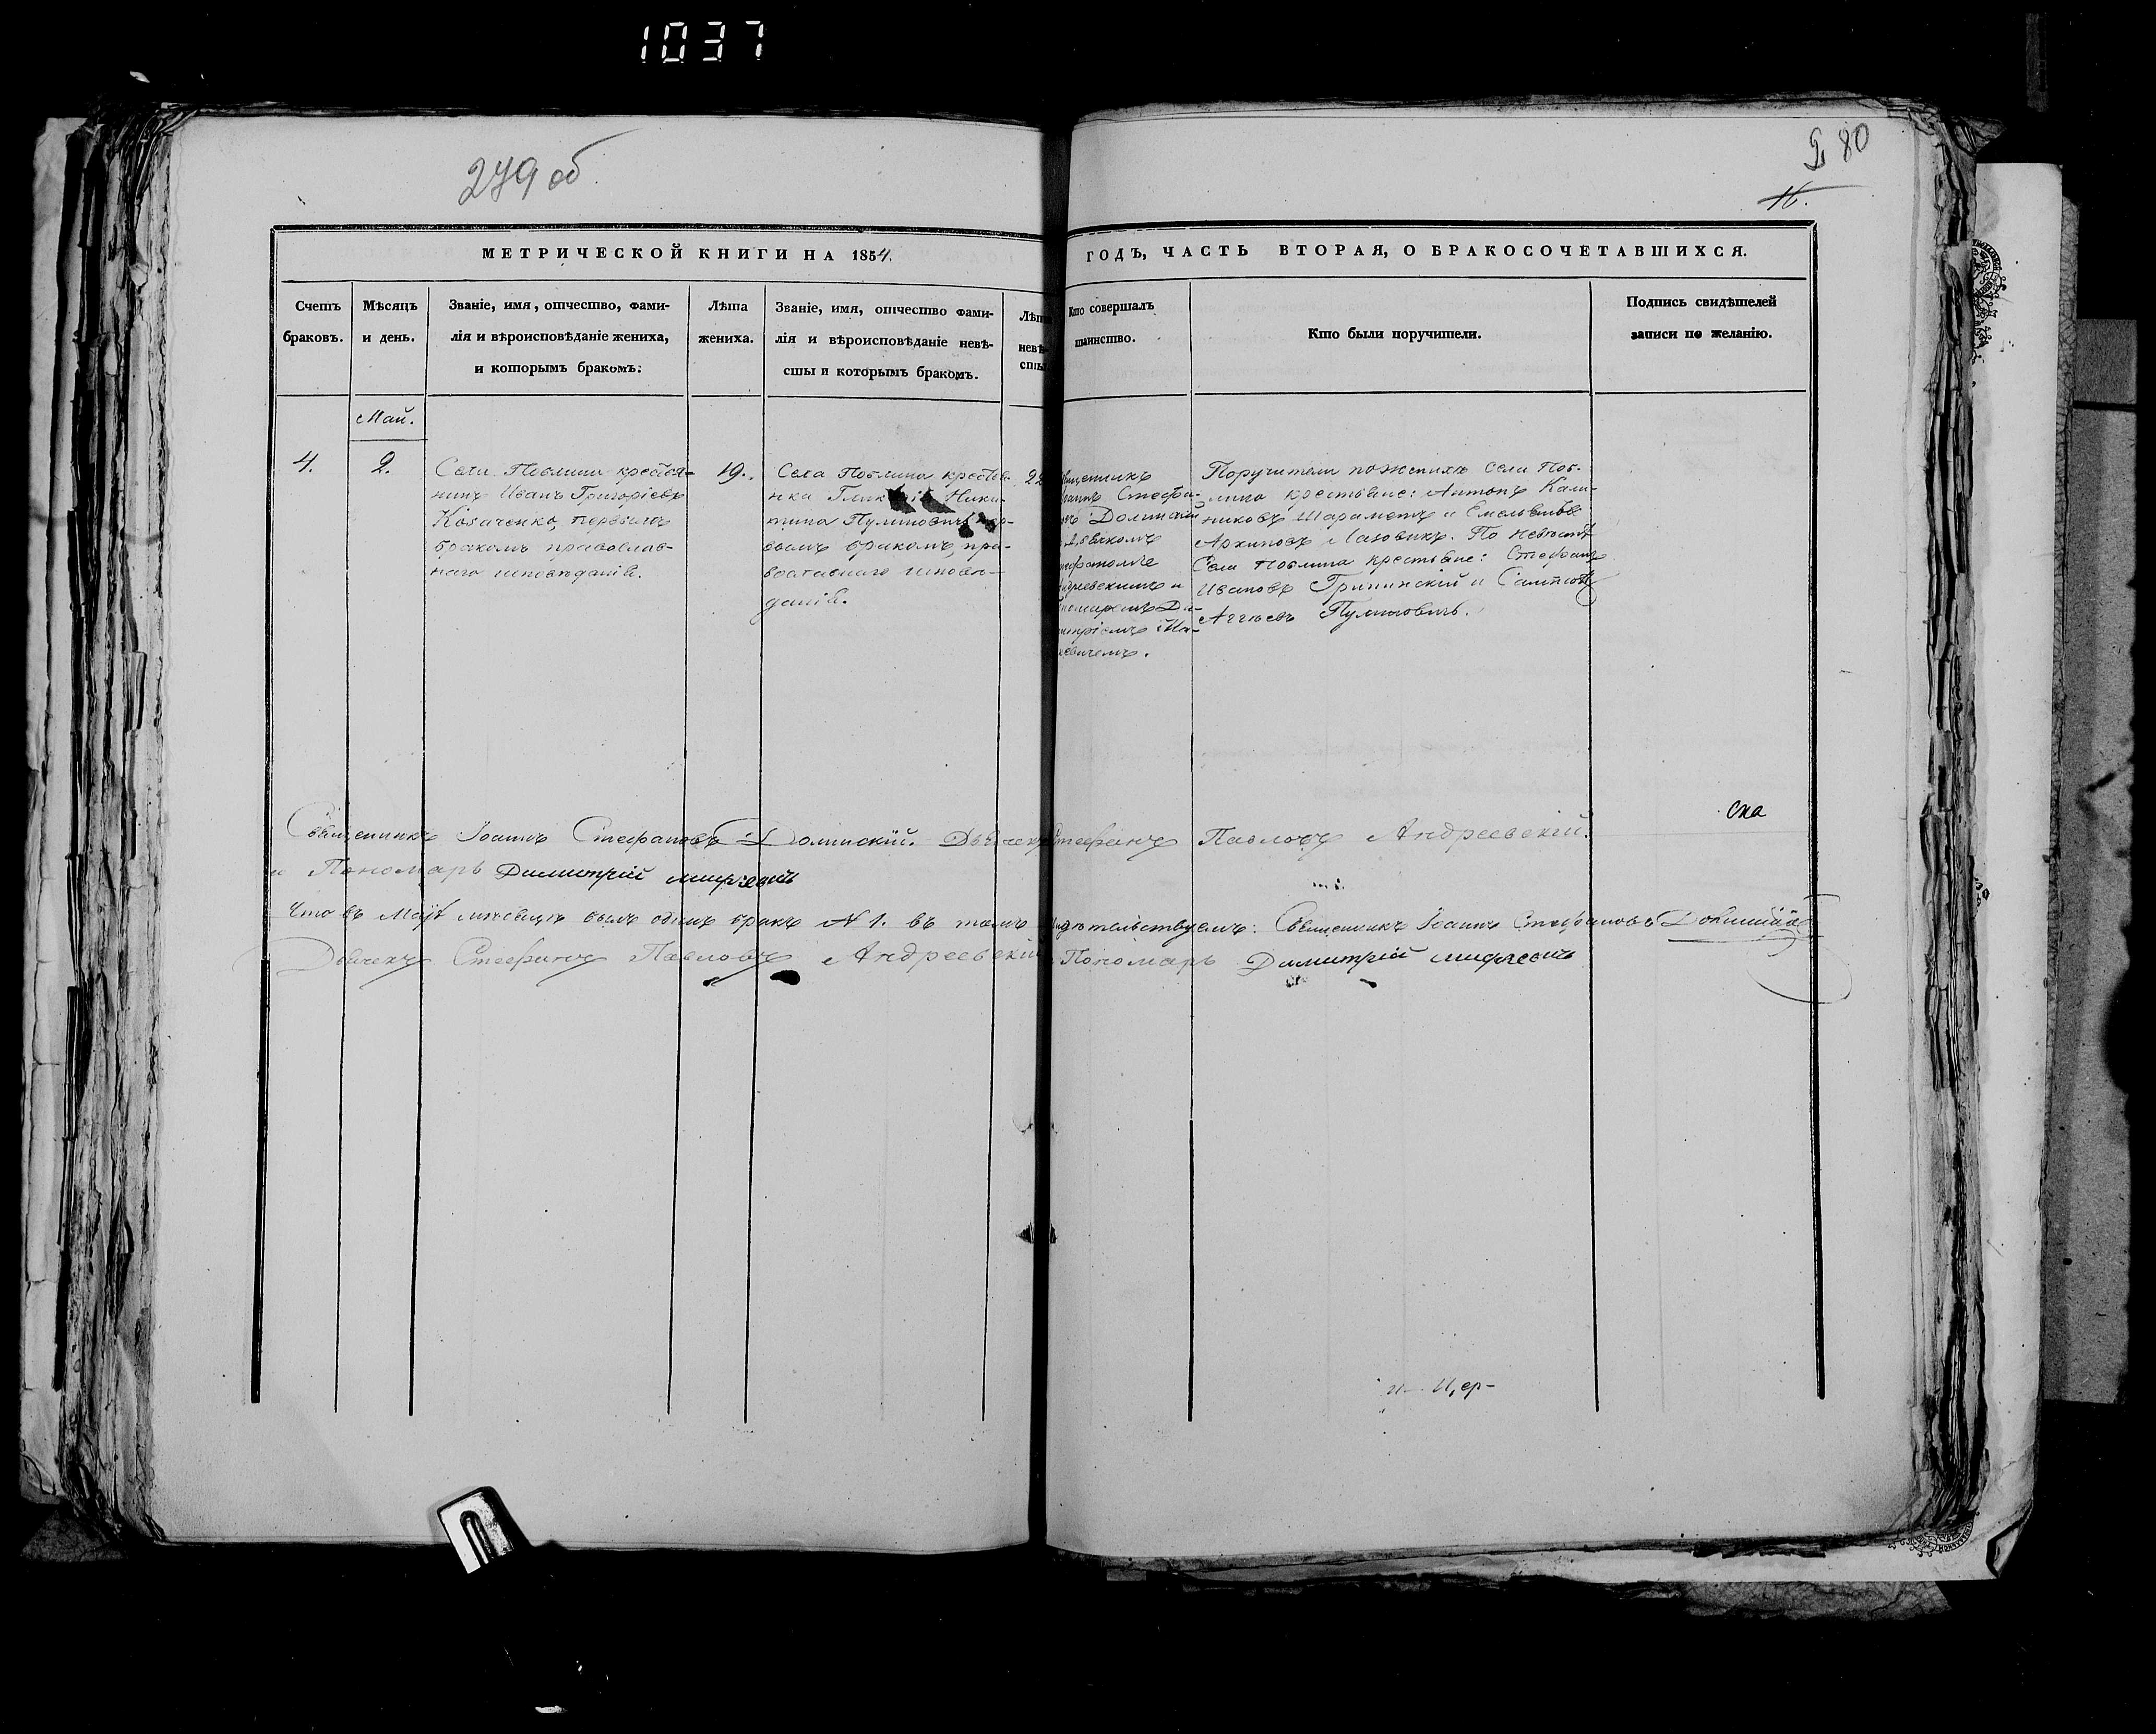 1037
279 об
280
16.
МЕТРИЧЕСКОЙ КНИГИ НА 1854.
ГОДЪ, ЧАСТЬ ВТОРАЯ, О БРАКОСОЧЕТАВШИХСЯ.
Счетъ
браковъ.
Мѣсяцъ
и день.
Званіе, имя, отчество, фами-
лія и вѣроисповѣданіе жениха,
и которымъ бракомъ.
Лѣта
жениха.
Званіе, имя, отчество фами-
лія и вѣроисповѣданіе невѣ-
сты и которымъ бракомъ.
Лѣта
невѣ-
сты
Кто совершалъ
таинство.
Кто были поручители.
Подпись свидѣтелей
записи по желанію.
Май.
4.
2.
Села крестья-
нинъ Иванъ Григоріевъ
Козаченко, первымъ
бракомъ православ-
наго исповѣданія.
19.
Села крестья-
нка Ники-
тина пер-
вымъ бракомъ, пра-
вославнаго исповѣ-
данія.
22
Стефа-
Долинскій
Андреевскимъ и
Пономаремъ Ди-
митріемъ
Поручители по женихѣ Села
крестьяне: Антонъ Кали-
никовъ и Емельянъ
Архиповъ По невѣстѣ
Села крестьяне: Стефанъ
Ивановъ и
Священникъ Іоаннъ Стефановъ Долинскій. Дьячекъ Стефанъ Павловъ Андреевскій.
и Пономарь Димитрій
Что въ Маѣ мѣсяцѣ былъ одинъ бракъ № 1. въ томъ свидѣтельствуемъ: Священникъ Іоаннъ Стефановъ Долинскій
Дьячекъ Стефанъ Павловъ Андреевскій Пономарь Димитрій